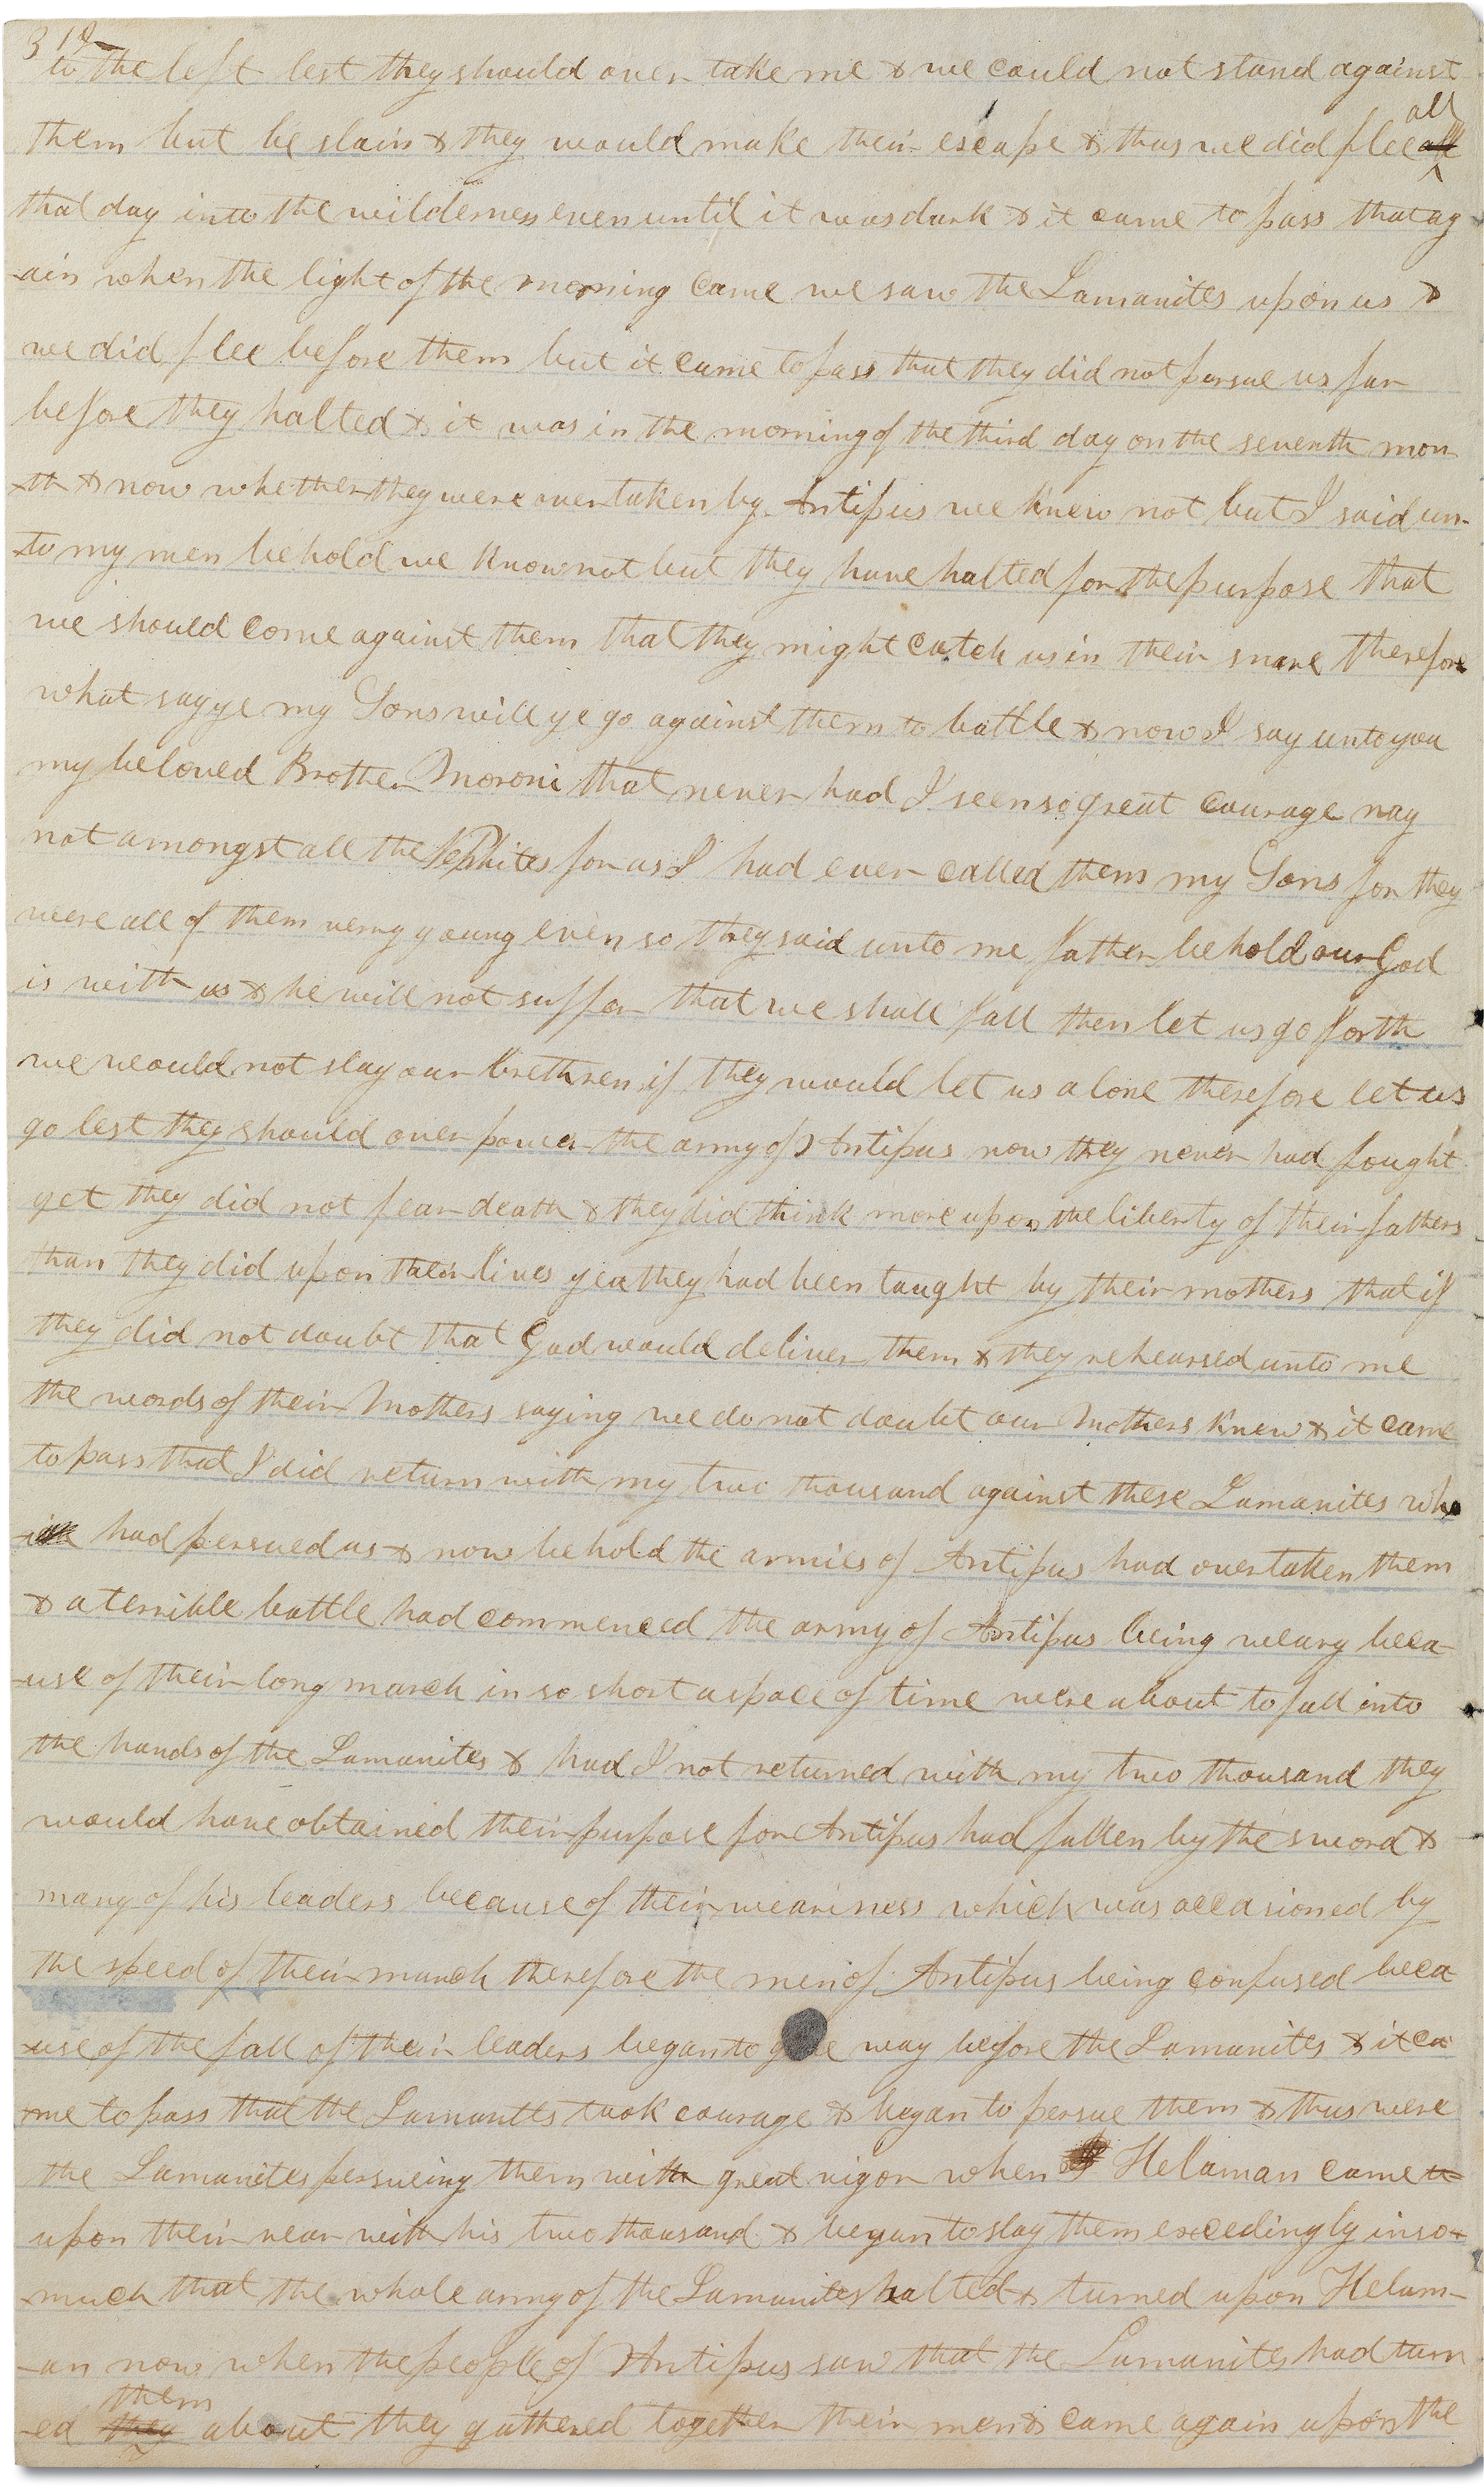 319
to the left lest they should over take me & we could not stand against
them but be slain & they would make their escape & thus we did flee all
that day into the wilderness even until it was dark & it came to pass that ag
-ain when the light of the morning came we saw the Lamanites upon us &
we did flee before them but it came to pass that they did not persue us far
before they halted & it was in the morning of the third day on the seventh mon
-th & now whether they were overtaken by Antipus we knew not but I said un-
-to my men behold we know not but they have halted for the purpose that
we should come against them that they might catch us in their snare therefore
what say ye my Sons will ye go against them to battle & now I say unto you
my beloved Brother Moroni that never had I seen so great courage nay
not amongst all the Nephites for as I had ever called them my Sons for they
were all of them very young even so they said unto me father behold our God
is with us & he will not suffer that we shall fall then let us go forth
we would not slay our brethren if they would let us alone therefore let us
go lest they should over power the army of Antipus now they never had fought
yet they did not fear death & they did think more upon the liberty of their fathers
than they did upon their lives yea they had been taught by their mothers that if
they did not doubt that God would deliver them & they rehearsed unto me
the words of their Mothers saying we do not doubt our Mothers knew & it came
to pass that I did return with my two thousand against these Lamanites who
had persued us & now behold the armies of Antipus had overtaken them
& a terrible battle had commenced the army of Antipus being weary beca
-use of their long march in so short a space of time were about to fall into
the hands of the Lamanites & had I not returned with my two thousand they
would have obtained their purpose for Antipus had fallen by the sword &
many of his leaders because of their weariness which was occasioned by
the speed of their march therefore the men of Antipus being confused beca
-use of the fall of their leaders began to give way before the Lamanites & it ca
-me to pass that the Lamanites took courage & began to persue them & thus were
the Lamanites persueing them with great vigor when Helaman came
upon their rear with his two thousand & began to slay them excedingly inso-
-much that the whole army of the Lamanites halted & turned upon Helam-
-an now when the people of Antipus saw that the Lamanites had turn
-ed they them about they gathered together their men & came again upon the